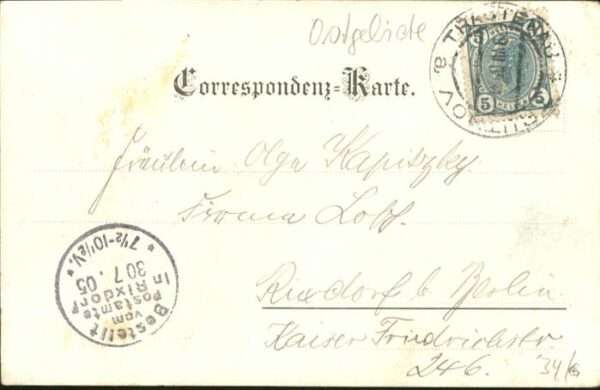 Ostgebiete
TRAUTENAU
TRUTNOV a
5 5
Correspondenz-Karte.
Fräulein Olga Kapitzky.
Firma Lobb.
Rixdorf b Berlin.
Kaiser Friedrichstr
246.
34/
Bestellt
vom
Postamte
in Rixdorf
30 7. 05
* 7½-10½V. *